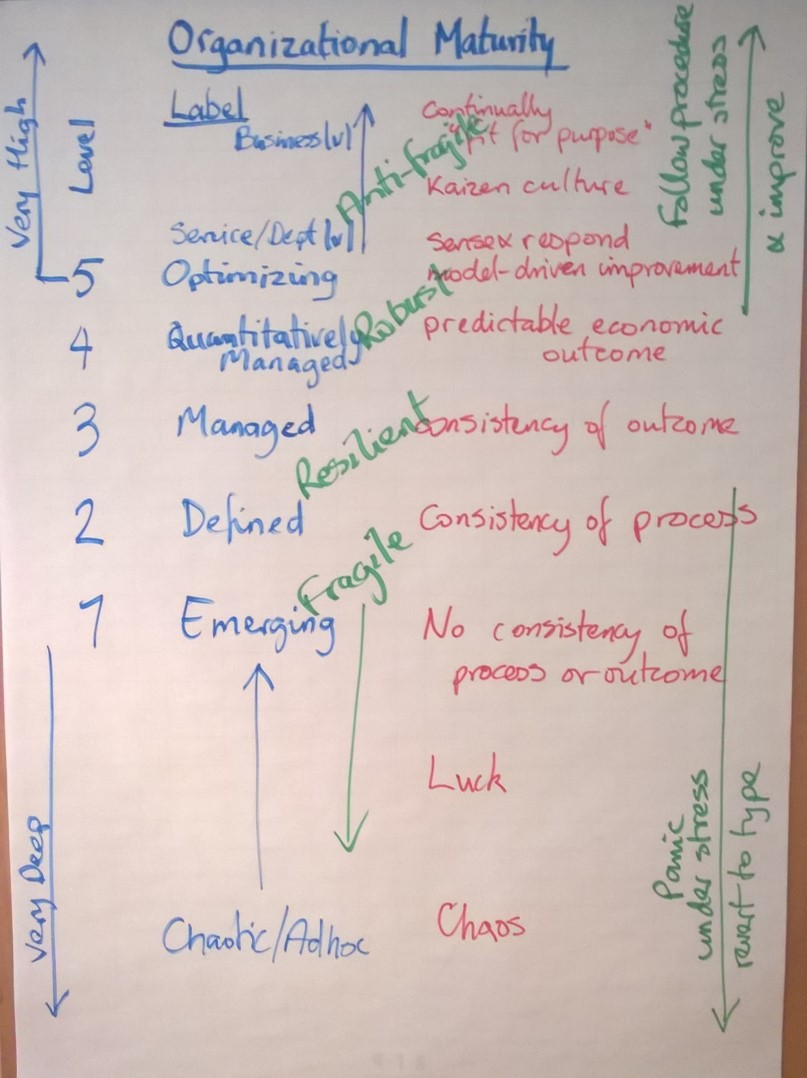 Organizational Maturity
Very High
Level
Label
Business lvl
Anti-fragile
Continually
"fit for purpose"
Kaizen culture
Follow procedure
under stress
& improve
Service/Dept lvl
sense & respond
5
Optimizing
model-driven improvement
4
Quantitatively
Managed
Robust
predictable economic
outcome
3
Managed
Resilient
consistency of outcome
2
Defined
Consistency of process
Fragile
1
Emerging
No consistency of
process or outcome
Luck
Very Deep
Chaotic/Adhoc
Chaos
Panic
under stress
revert to type